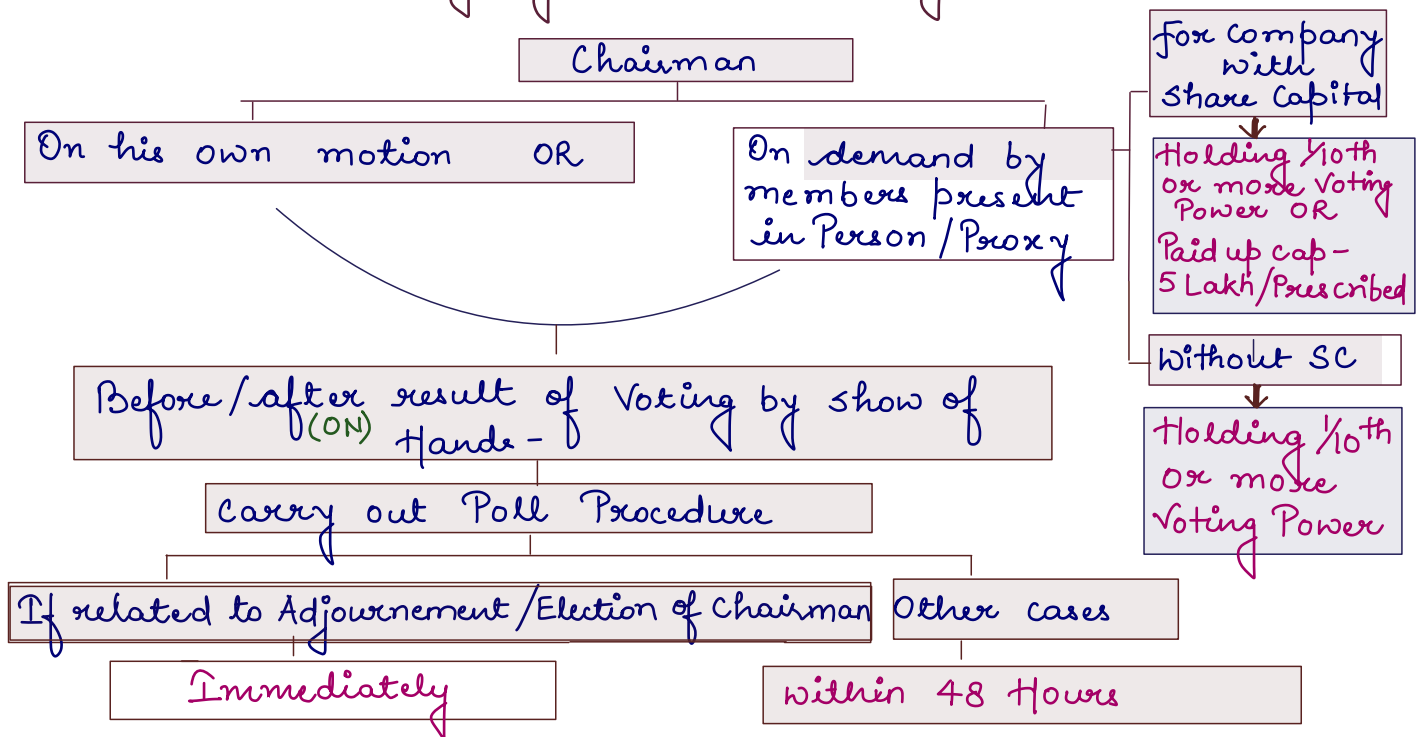 Chairman
On his own motion OR
On demand by
members present
in Person / Proxy
For Company
with
Share Capital
Holding 1/10th
or more Voting
Power OR
Paid up cap -
5 Lakh/Prescribed
Without SC
Holding 1/10th
or more
Voting Power
Before/after result of Voting by show of
(ON) Hands -
Carry out Poll Procedure
If related to Adjournement/Election of Chairman
Immediately
Other cases
within 48 Hours